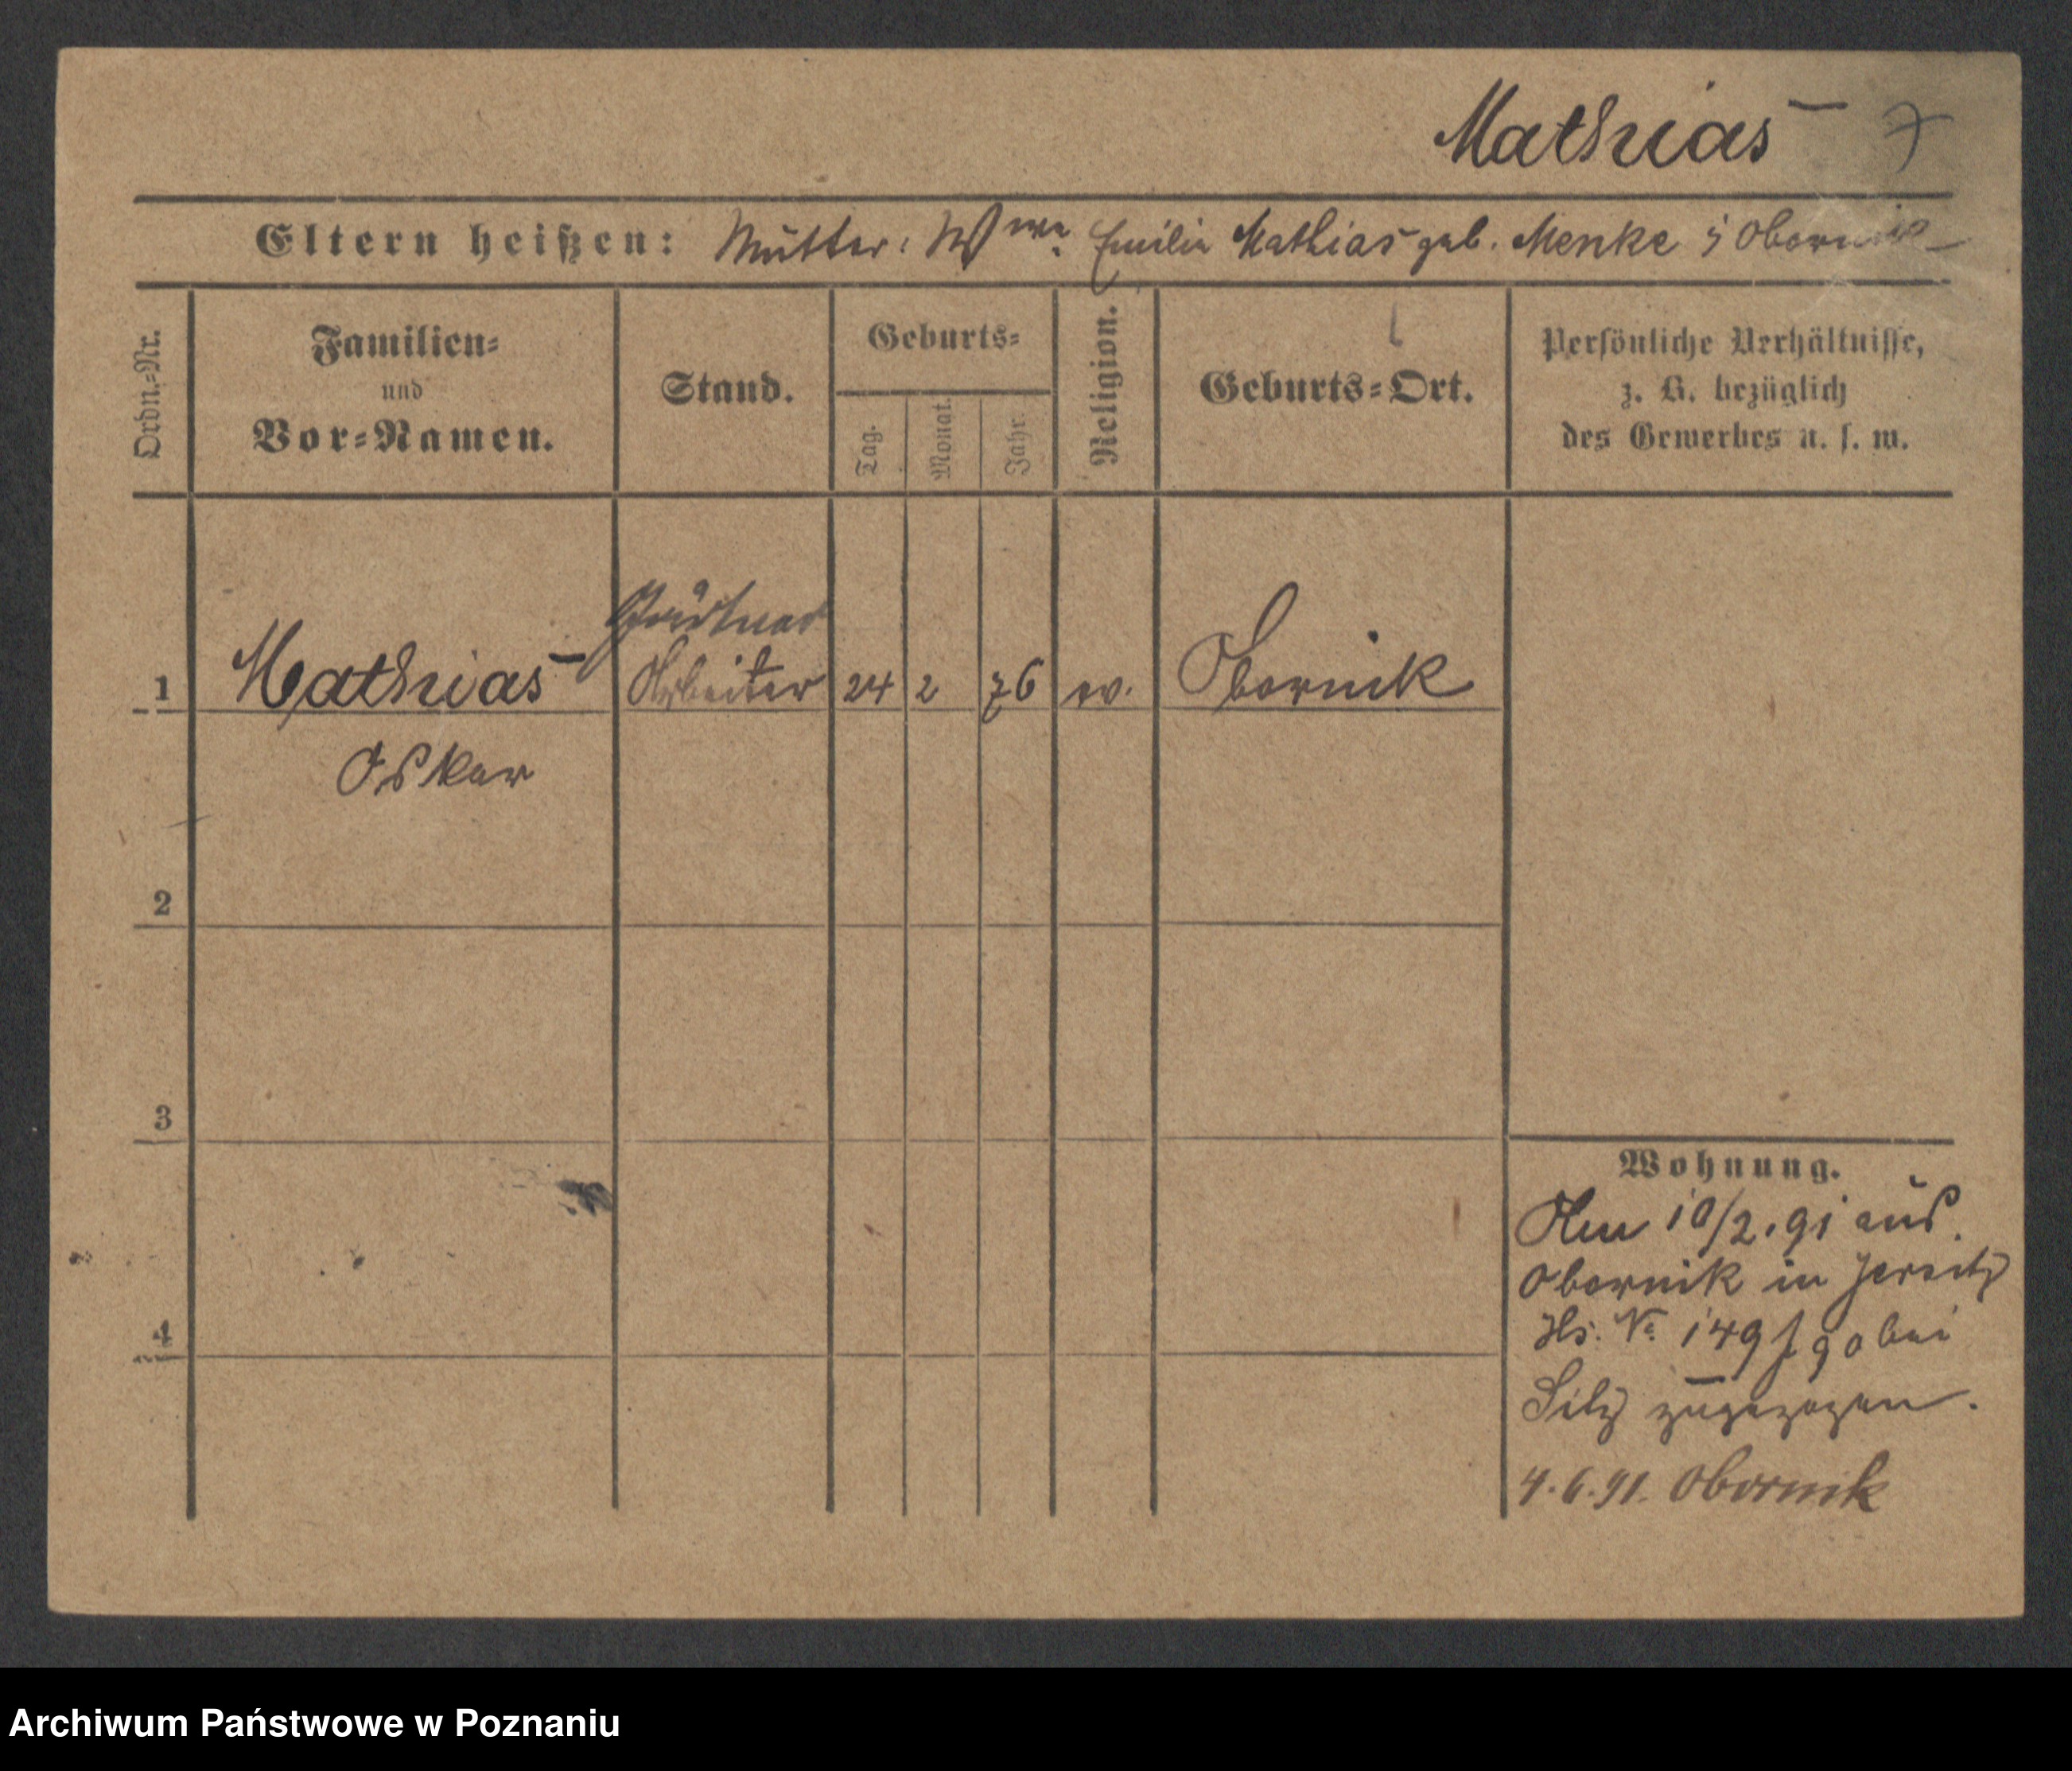 Mathias
Eltern heißen: Mutter: Wwe Emilie Mathias geb. Menke i Obornik
Ordn.-Nr.
Familien-
und
Vor-Namen.
Stand.
Geburts-
Tag.
Monat.
Jahr.
Religion.
Geburts-Ort.
Persönliche Verhältnisse,
z. B. bezüglich
des Gewerbes u. s. w.
Gärtner
1 Mathias Arbeiter 24 2 76 ev. Obornik
Oskar
2
3
4
Wohnung.
Am 10/2.91 aus
Obornik in Jersitz
Hs. No 149 J 90 bei
zugezogen.
4.6.91. Obornik
Archiwum Państwowe w Poznaniu